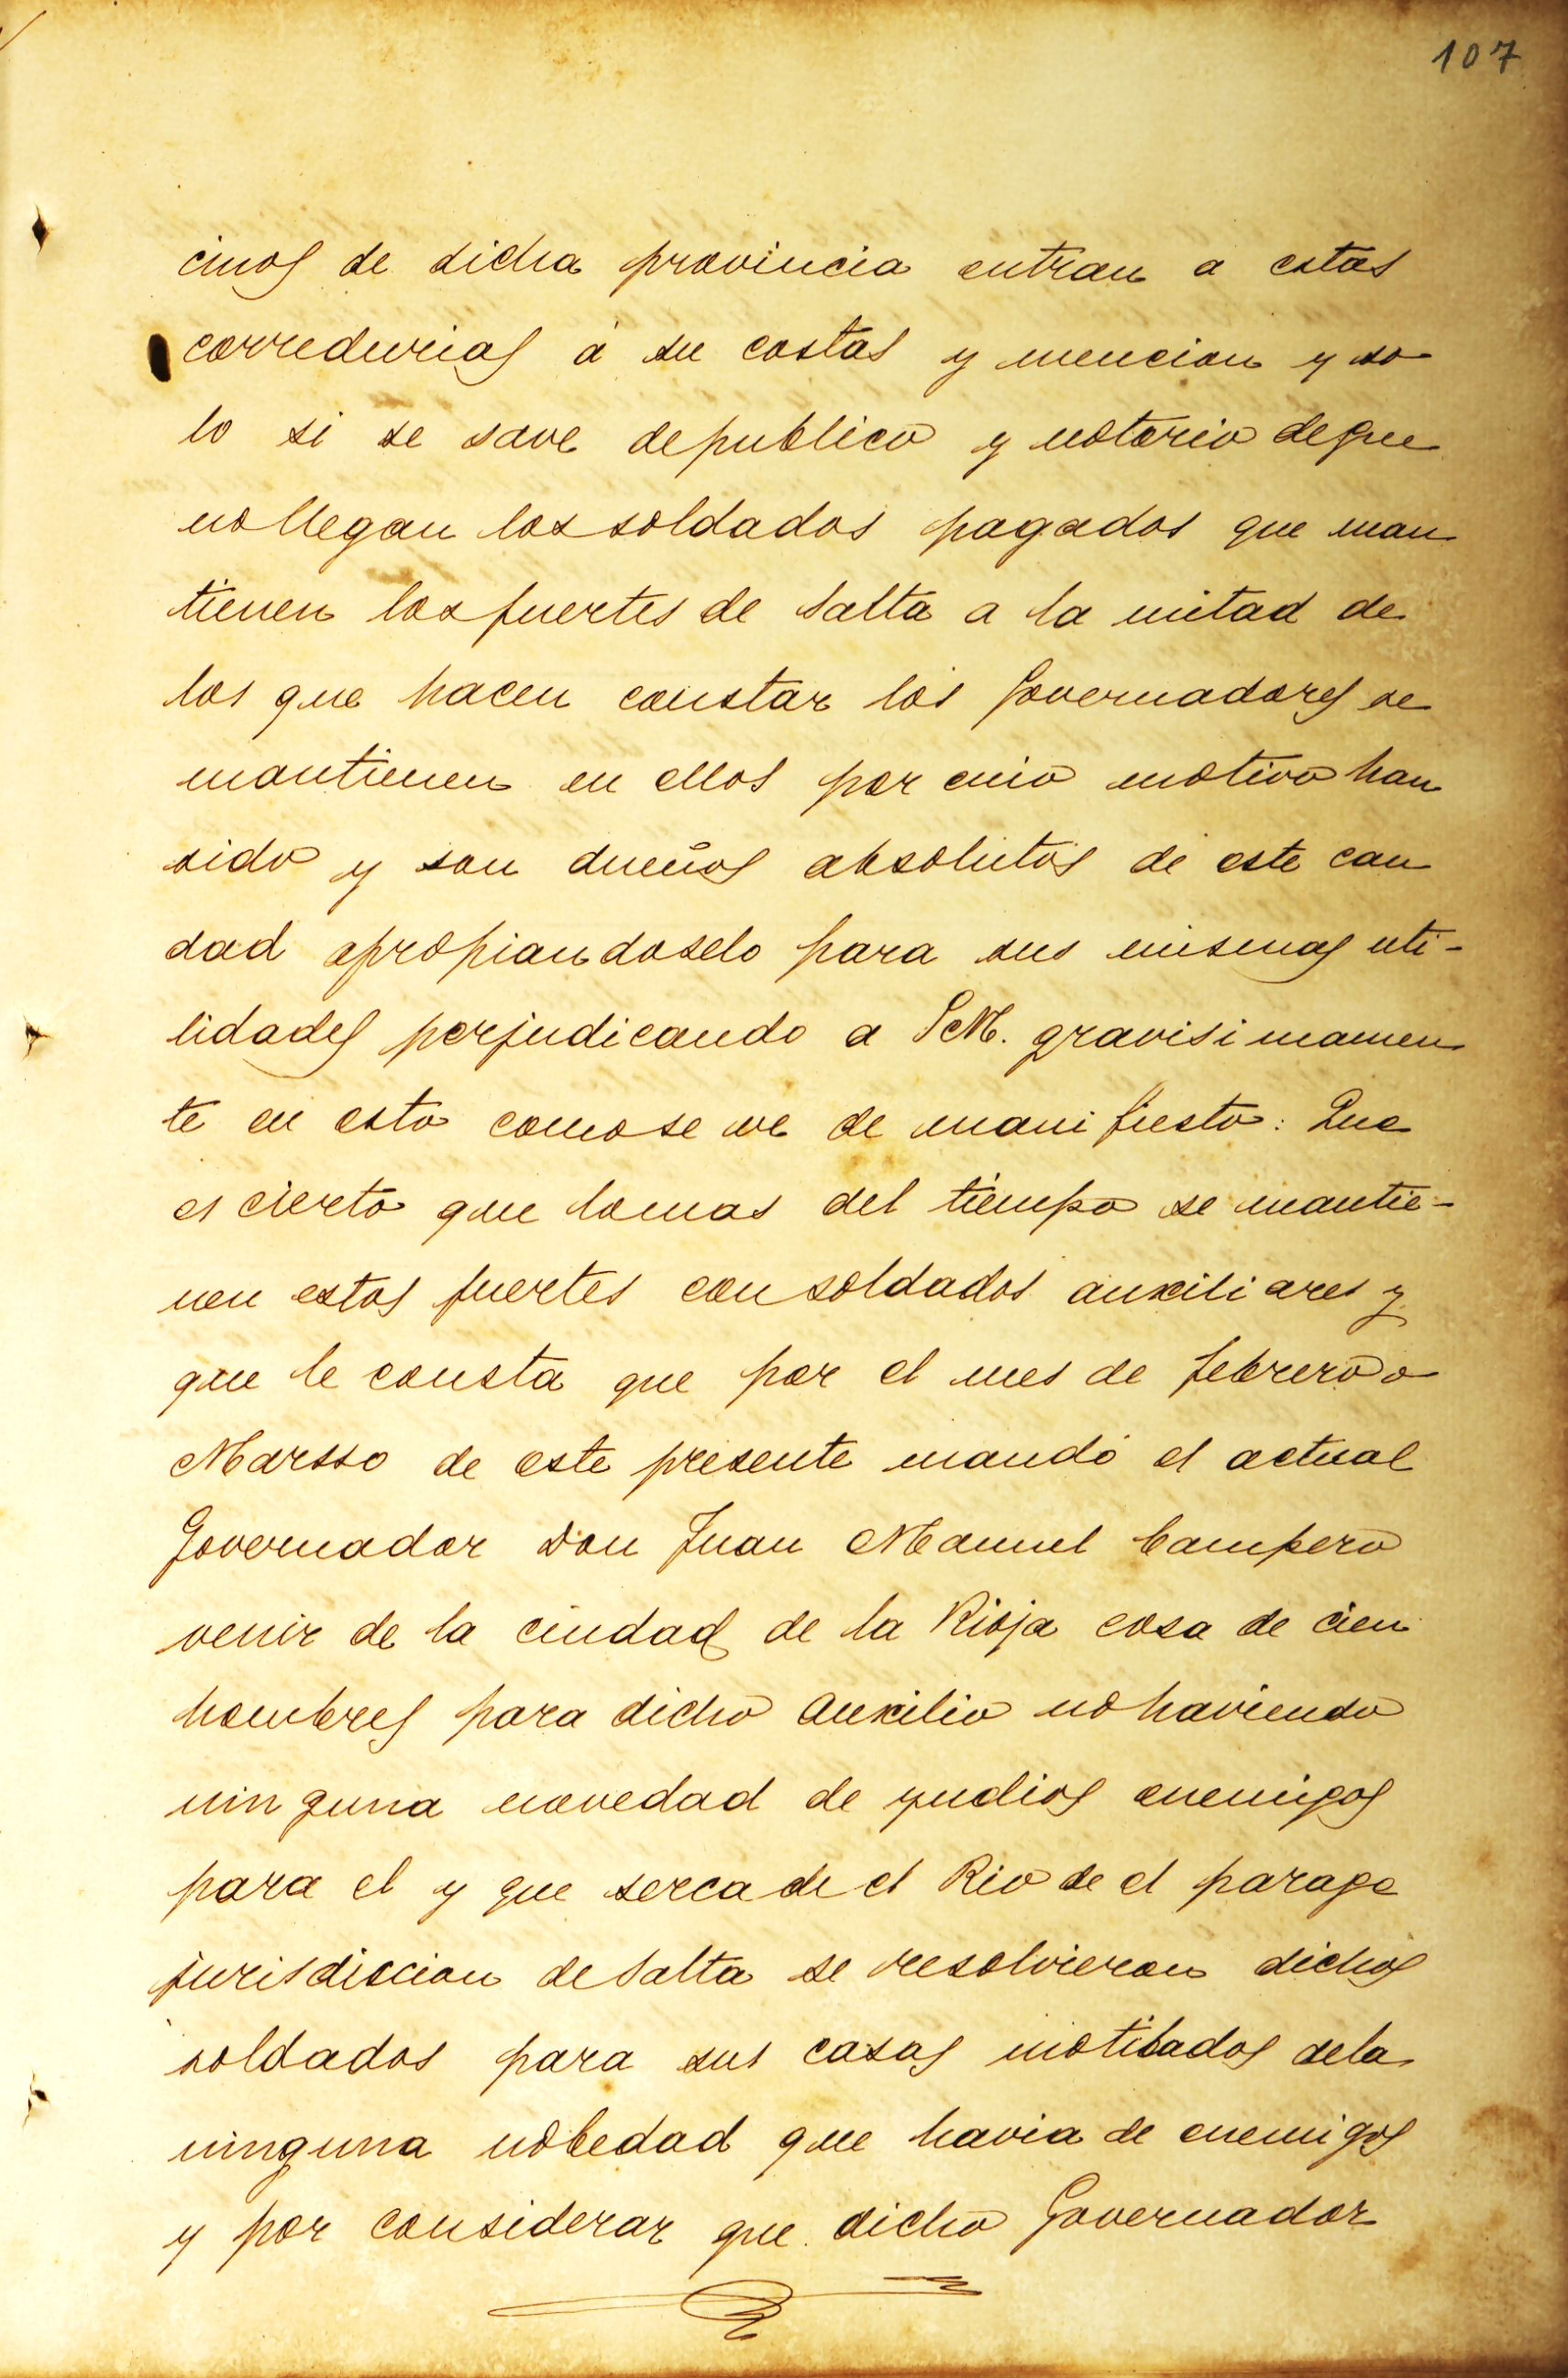 107
cinos de dicha provincia entran a estas
corredurias á su costas y mencion y so
lo si se save depublico y notorio deque
no llegan los soldados pagados que man
tienen los fuertes de Salta a la mitad de
los que hacen constar los Governadores se
mantienen en ellos por cuio motivo han
sido y son dueños absolutos de este cau
dad apropiandoselo para sus mismas uti-
lidades perjudicando a S.M. gravisimamen
te en esto comose ve de manifiesto: Que
es cierto que lomas del tiempo se mantie-
nen estos fuertes con soldados auxiliares y
que le consta que por el mes de febrero o
Marsso de este presente mandó el actual
Governador Don Juan Manuel Campero
venir de la ciudad de la Rioja cosa de cien
hombres para dicho auxilio no haviendo
ninguna novedad de yndios enemigos
para el y que serca de el Rio de el parage
jurisdiccion de Salta se resolvieron dichos
soldados para sus casas motibados dela
ninguna nobedad que havia de enemigos
y por considerar que dicho Governador